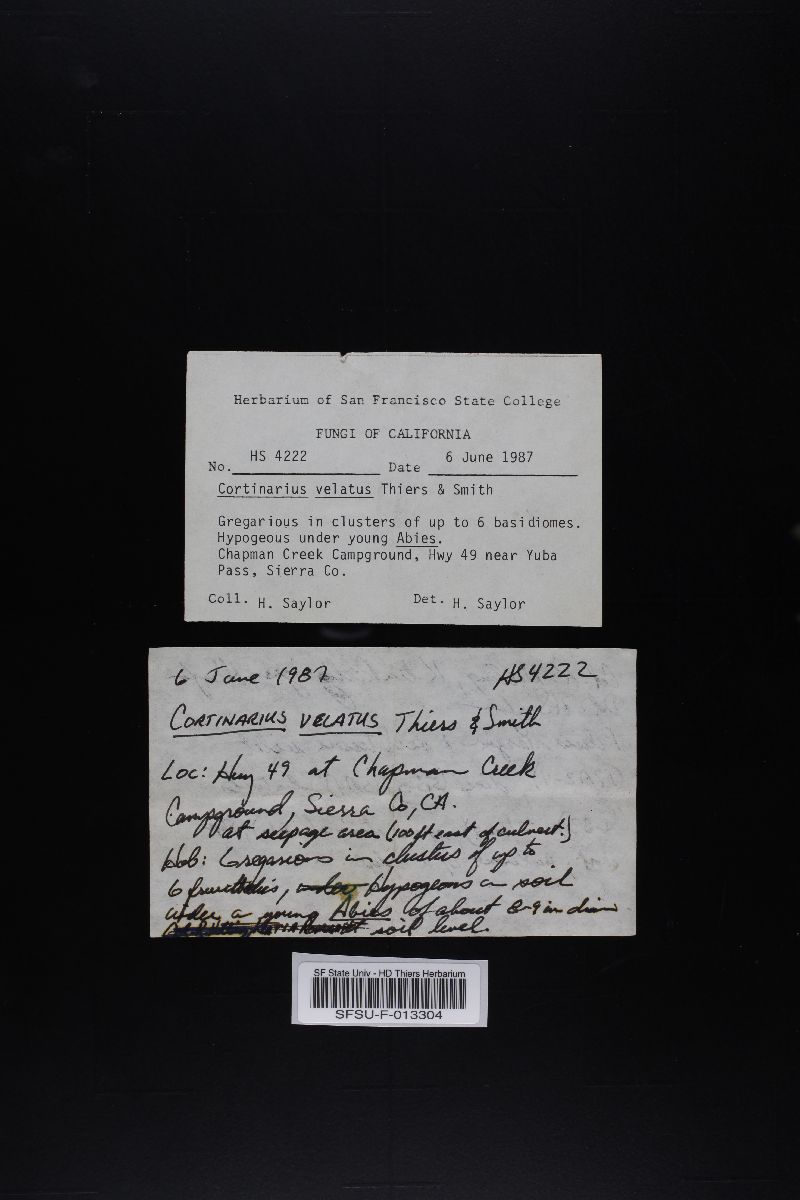 Herbarium of San Francisco State College
FUNGI OF CALIFORNIA
No. HS 4222 Date 6 June 1987
Cortinarius velatus Thiers & Smith
Gregarious in clusters of up to 6 basidiomes.
Hypogeous under young Abies.
Chapman Creek Campground, Hwy 49 near Yuba
Pass, Sierra Co.
Coll. H. Saylor Det. H. Saylor
6 June 1987 HS4222
CORTINARIUS VELATUS Thiers & Smith
Loc: Hwy 49 at Chapman Creek
Campground, Sierra Co, CA.
at seepage area (100 ft east of culvert.)
Hab: Gregarious in clusters of up to
6 fruitbodies, under Hypogeous in soil
under a young Abies of about 8-9 in diam
soil level.
SF State Univ - HD Thiers Herbarium
SFSU-F-013304